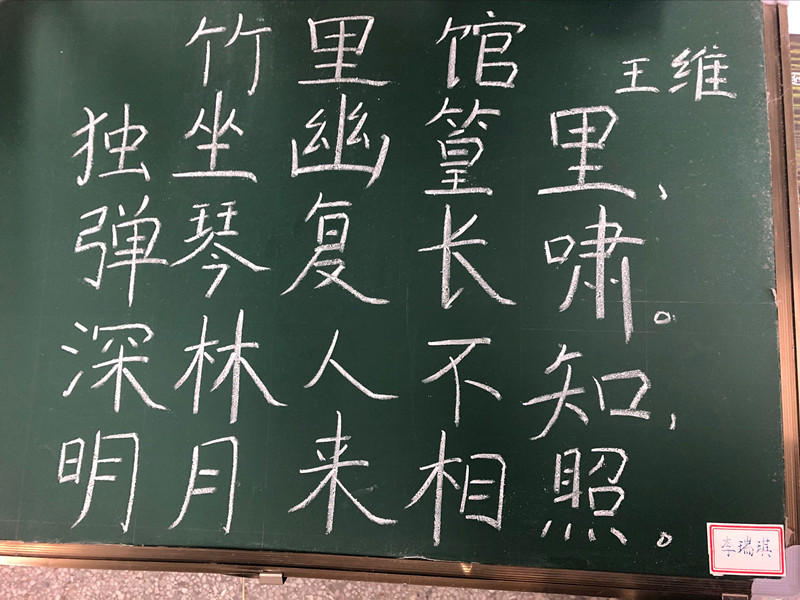 竹里馆
王维
独坐幽篁里、
弹琴复长啸。
深林人不知,
明月来相照。
李瑞琪